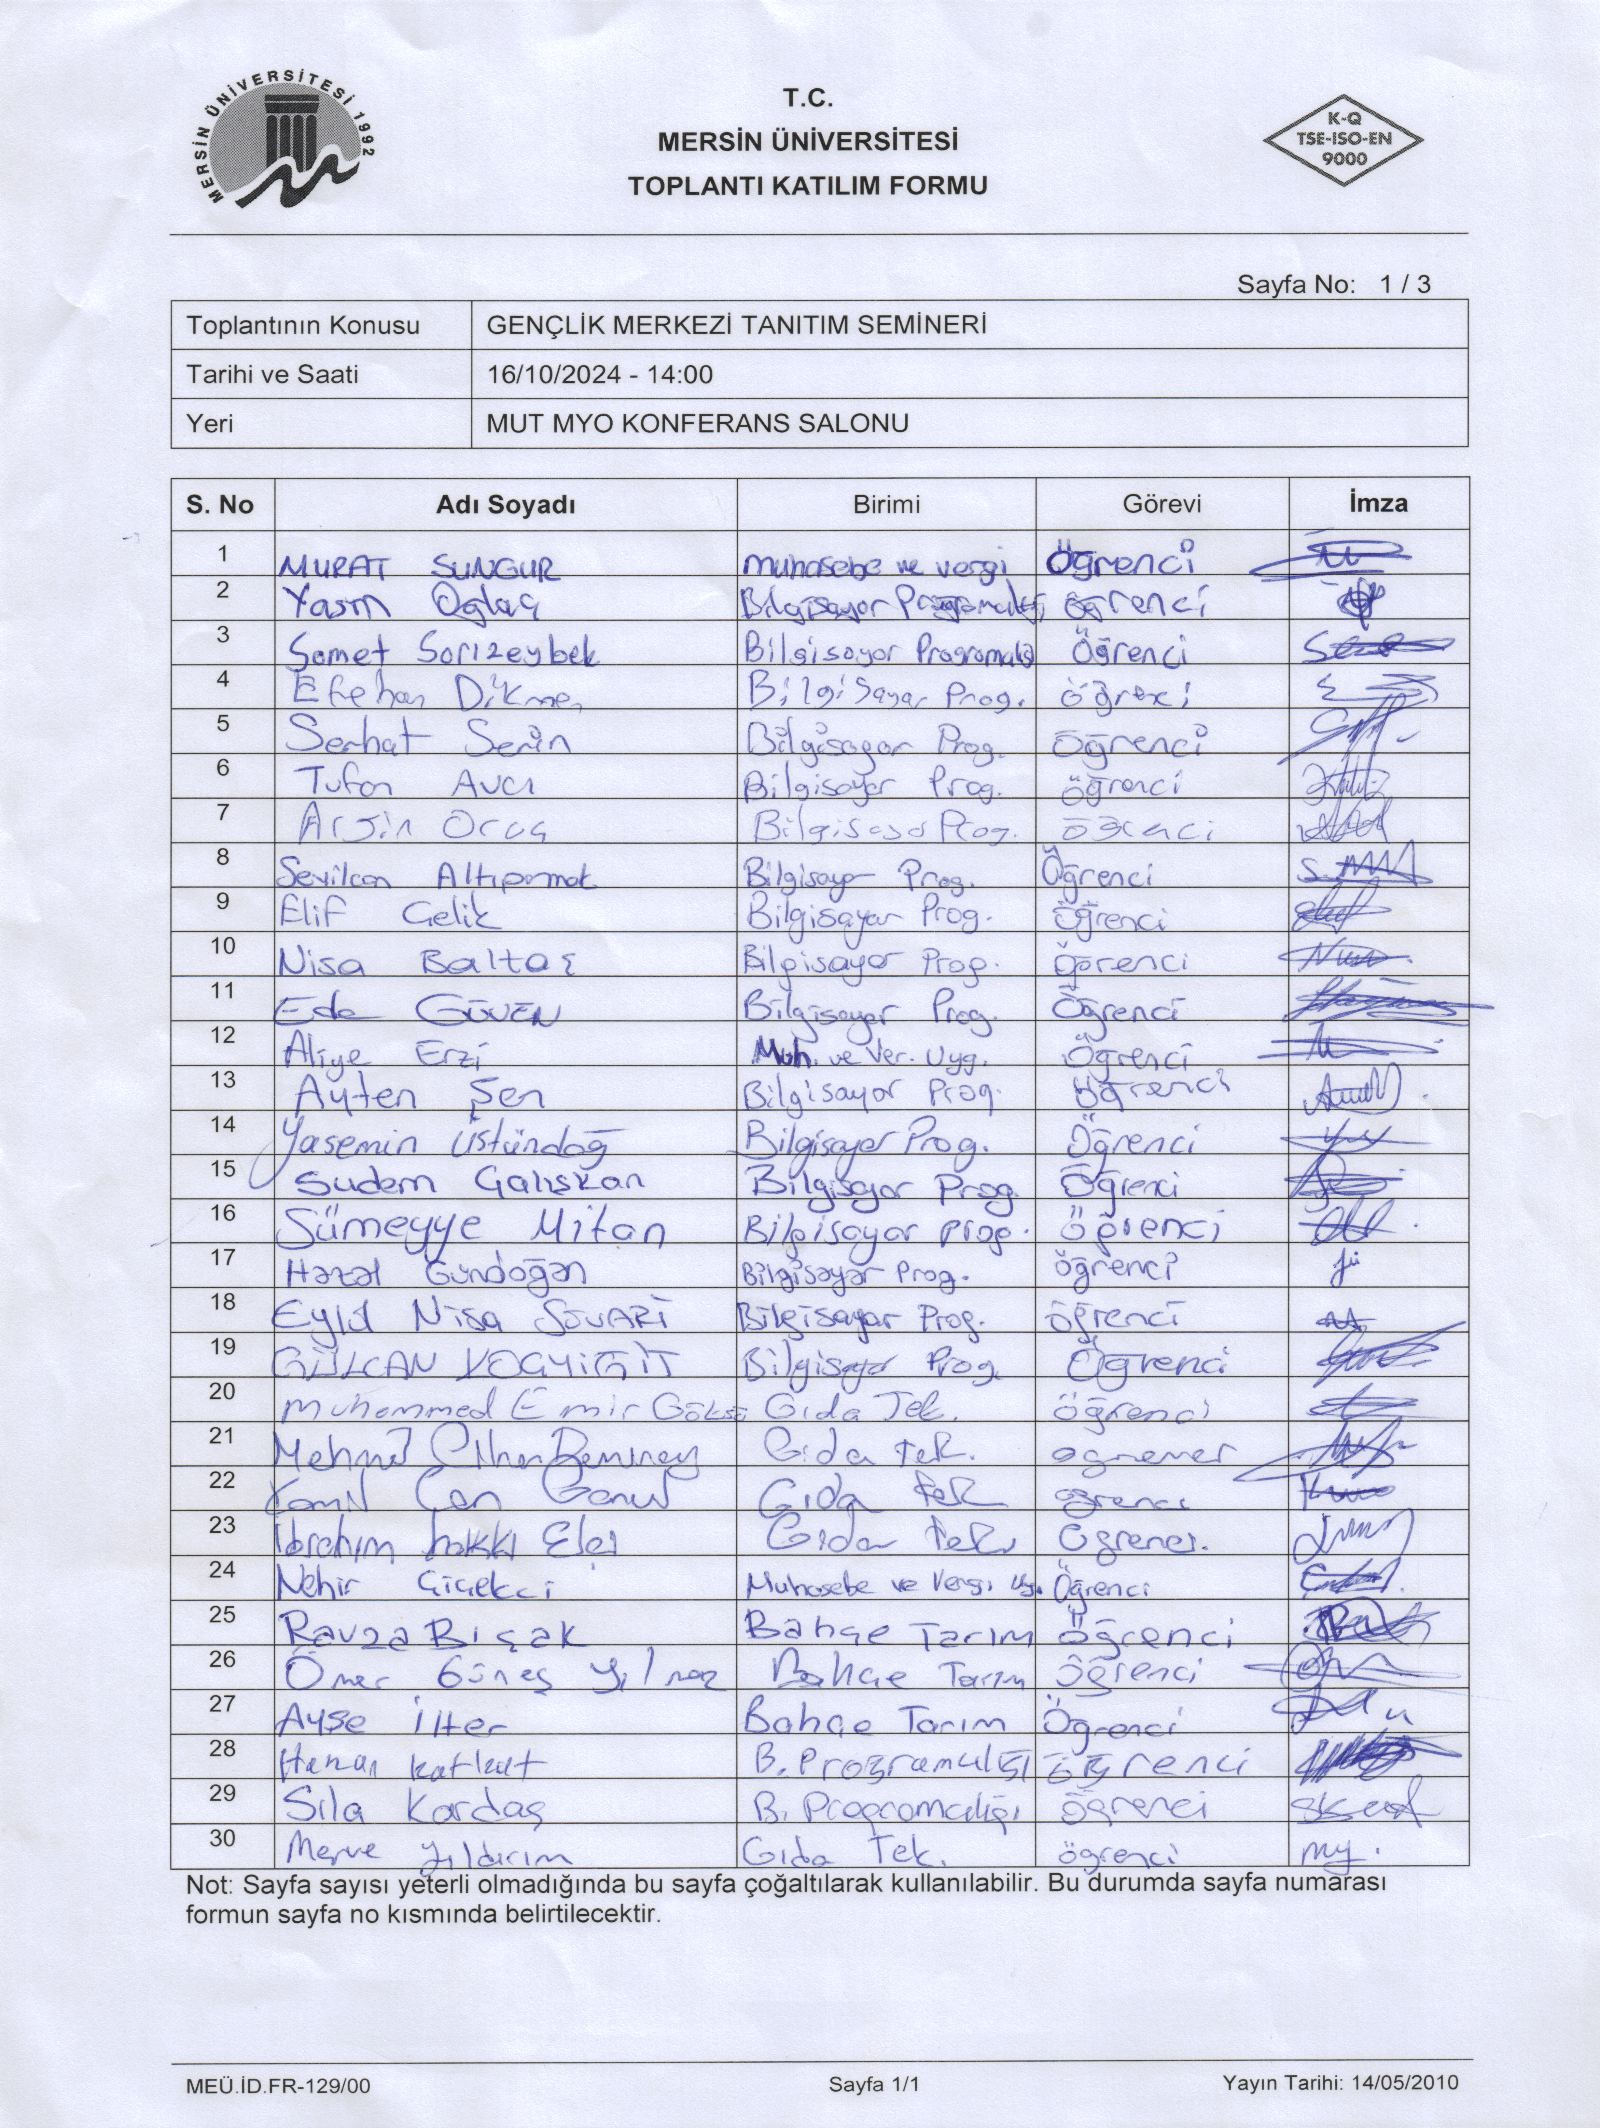 MERSİN ÜNİVERSİTESİ 1992
T.C.
MERSİN ÜNİVERSİTESİ
TOPLANTI KATILIM FORMU
K-Q
TSE-ISO-EN
9000
Sayfa No: 1 / 3
Toplantının Konusu GENÇLİK MERKEZİ TANITIM SEMİNERİ
Tarihi ve Saati 16/10/2024 - 14:00
Yeri MUT MYO KONFERANS SALONU
S. No Adı Soyadı Birimi Görevi İmza
1 MURAT SUNGUR Muhasebe ve vergi Öğrenci
2 Yasin Oğlaç Bilgisayar öğrenci
3 Samet Sarızeybek Bilgisayar Öğrenci
4 Efehan Dikmen Bilgisayar Prog.
5 Serhat Serin Bilgisayar Prog. Öğrenci
6 Tufan Avcı Bilgisayar Prog. öğrenci
7 Oruç Prog.
8 Bilgisayar Prog. Öğrenci
9 Elif Çelik Bilgisayar Prog. öğrenci
10 Nisa Baltaş Bilgisayar Prog. öğrenci
11 Eda GÜVEN Bilgisayar Prog. Öğrenci
12 Aliye Erzi Muh. ve Ver. Uyg. Öğrenci
13 Ayten Şen Bilgisayar Prog. Öğrenci
14 Yasemin Üstündağ Bilgisayar Prog. Öğrenci
15 Sudem Çalışkan Bilgisayar Prog. Öğrenci
16 Sümeyye Mitan Bilgisayar prog. Öğrenci
17 Hazal Gündoğan Bilgisayar Prog. öğrenci
18 Eylül Nisa SÜVARİ Bilgisayar Prog. öğrenci
19 GÜLCAN KOÇYİĞİT Bilgisayar Prog. Öğrenci
20 Muhammed Emir Gıda Tek. öğrenci
21 Gıda Tek.
22 Can Gıda Tek
23 İbrahim hakkı Gıda Tek.
24 Nehir Çiçekci Muhasebe ve Vergi Uyg. Öğrenci
25 Ravza Bıçak Bahçe Tarım Öğrenci
26 Ömer Güneş Yılmaz Bahçe Tarım öğrenci
27 Ayşe İlter Bahçe Tarım Öğrenci
28 B. öğrenci
29 Sıla Kardaş B. Programcılığı öğrenci
30 Merve Yıldırım Gıda Tek. öğrenci my.
Not: Sayfa sayısı yeterli olmadığında bu sayfa çoğaltılarak kullanılabilir. Bu durumda sayfa numarası
formun sayfa no kısmında belirtilecektir.
MEÜ.İD.FR-129/00 Sayfa 1/1 Yayın Tarihi: 14/05/2010